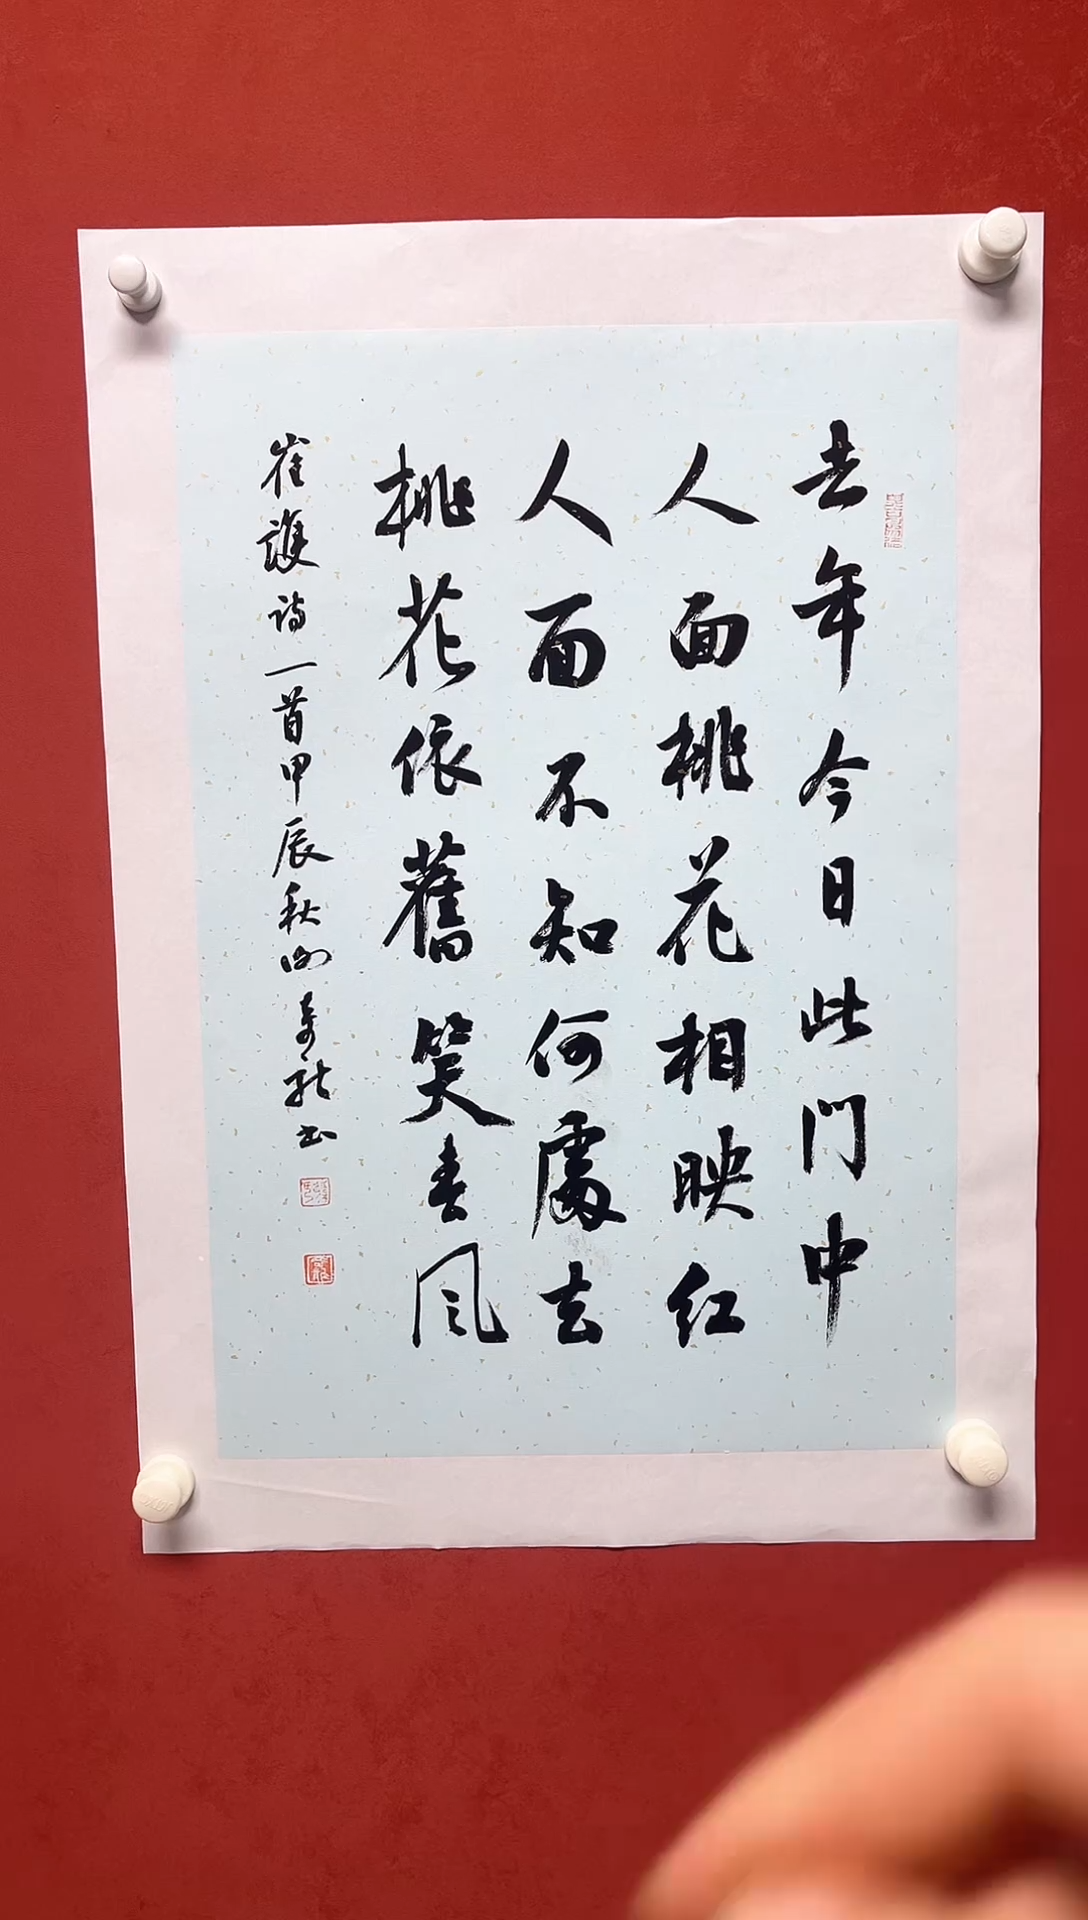 去年今日此門中
人面桃花相映红
人面不知何處去
桃花依舊笑春风
崔護诗一首甲辰秋
书